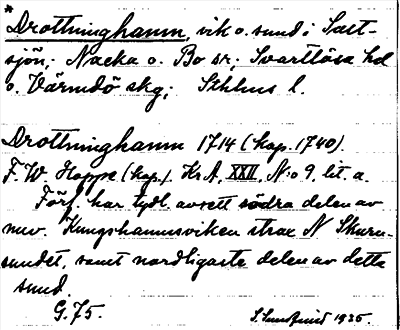 *
Drottninghamn, vik o. sund i Salt-
sjön; Nacka o. Bo sr; Svartlösa hd
o. Värmdö skg; Sthlms l.
Drottninghamn 1714 (kop. 1740).
F. W. Hoppe (kop.) KrA, XXII, N:o 9. lit. a.
Förf. har tydl. avsett södra delen av
nuv. Kungshamnsviken strax N Skuru-
sundet, samt nordligaste delen av detta
sund.
G. 75.
S. Lundqvist 1935.